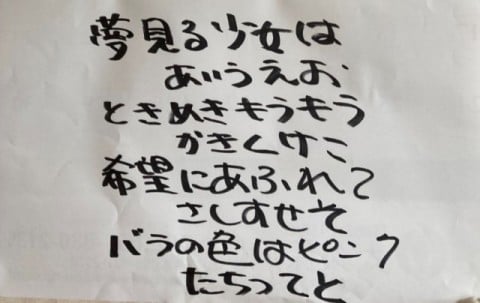 夢見る少女は
あいうえお
ときめきもうもう
かきくけこ
希望にあふれて
さしすせそ
バラの色はピンク
たちつてと